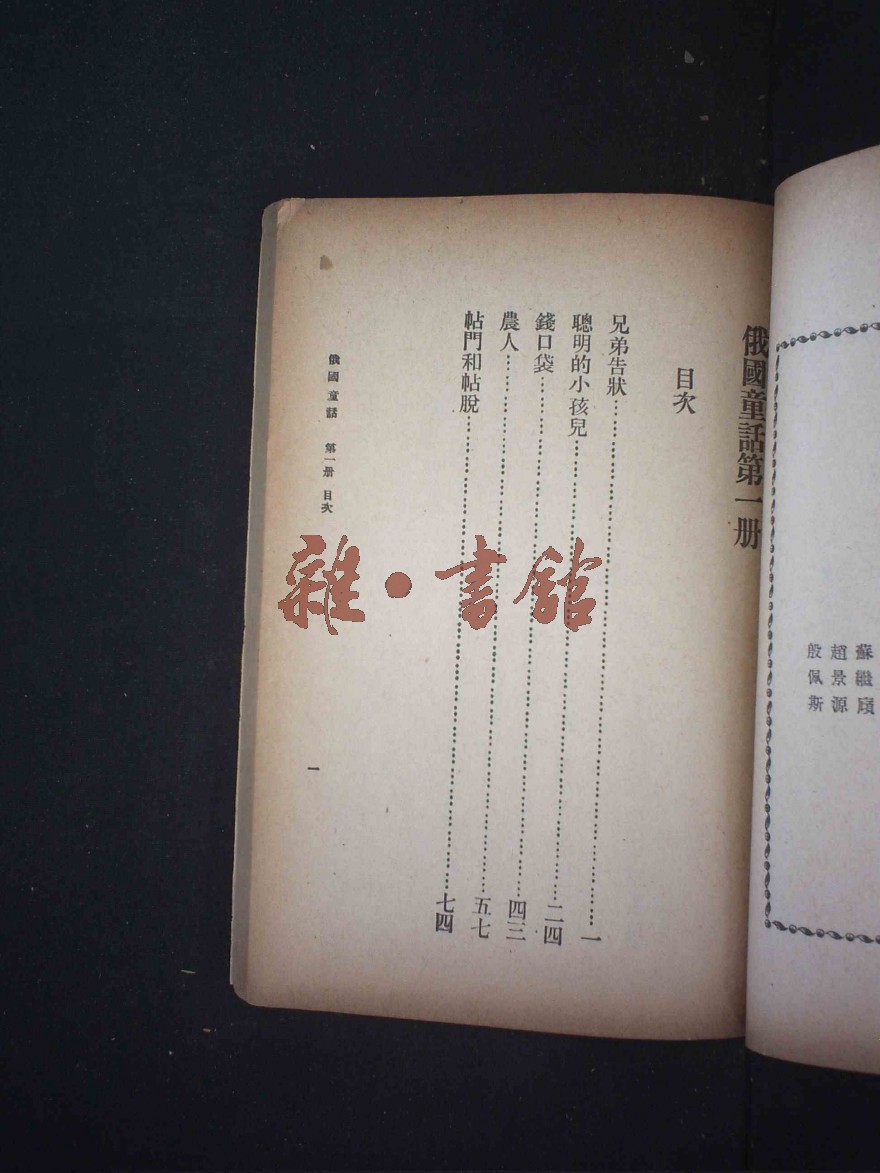 蘇繼廎
趙景源
殷佩斯
俄國童話第一册
目次
兄弟告狀…一
聰明的小孩兒…二四
錢口袋…四三
農人…五七
帖門和帖脫…七四
俄國童話 第一册 目次
一
雜·書館